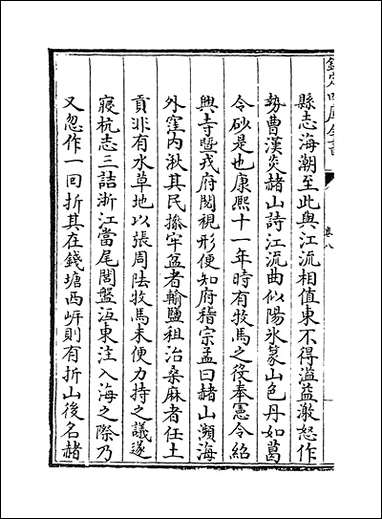 欽定四庫全書
卷八
縣志海潮至此與江流相值東不得溢益激怒作
勢曹漢炎赭山詩江流曲似陽氷篆山色丹如葛
令砂是也康熙十一年時有牧馬之役奉憲令紹
興寺暨戎府閱視形便知府稽宗孟曰赭山瀕海
外窪内湫其民搽牢盆者輸鹽租治桑麻者任土
貢非有水草地以張周阹牧馬未便力持之議遂
寢杭志三詰浙江當尾閭盤沍東注入海之際乃
又忽作一回折其在錢塘西㟁則有折山後名赭